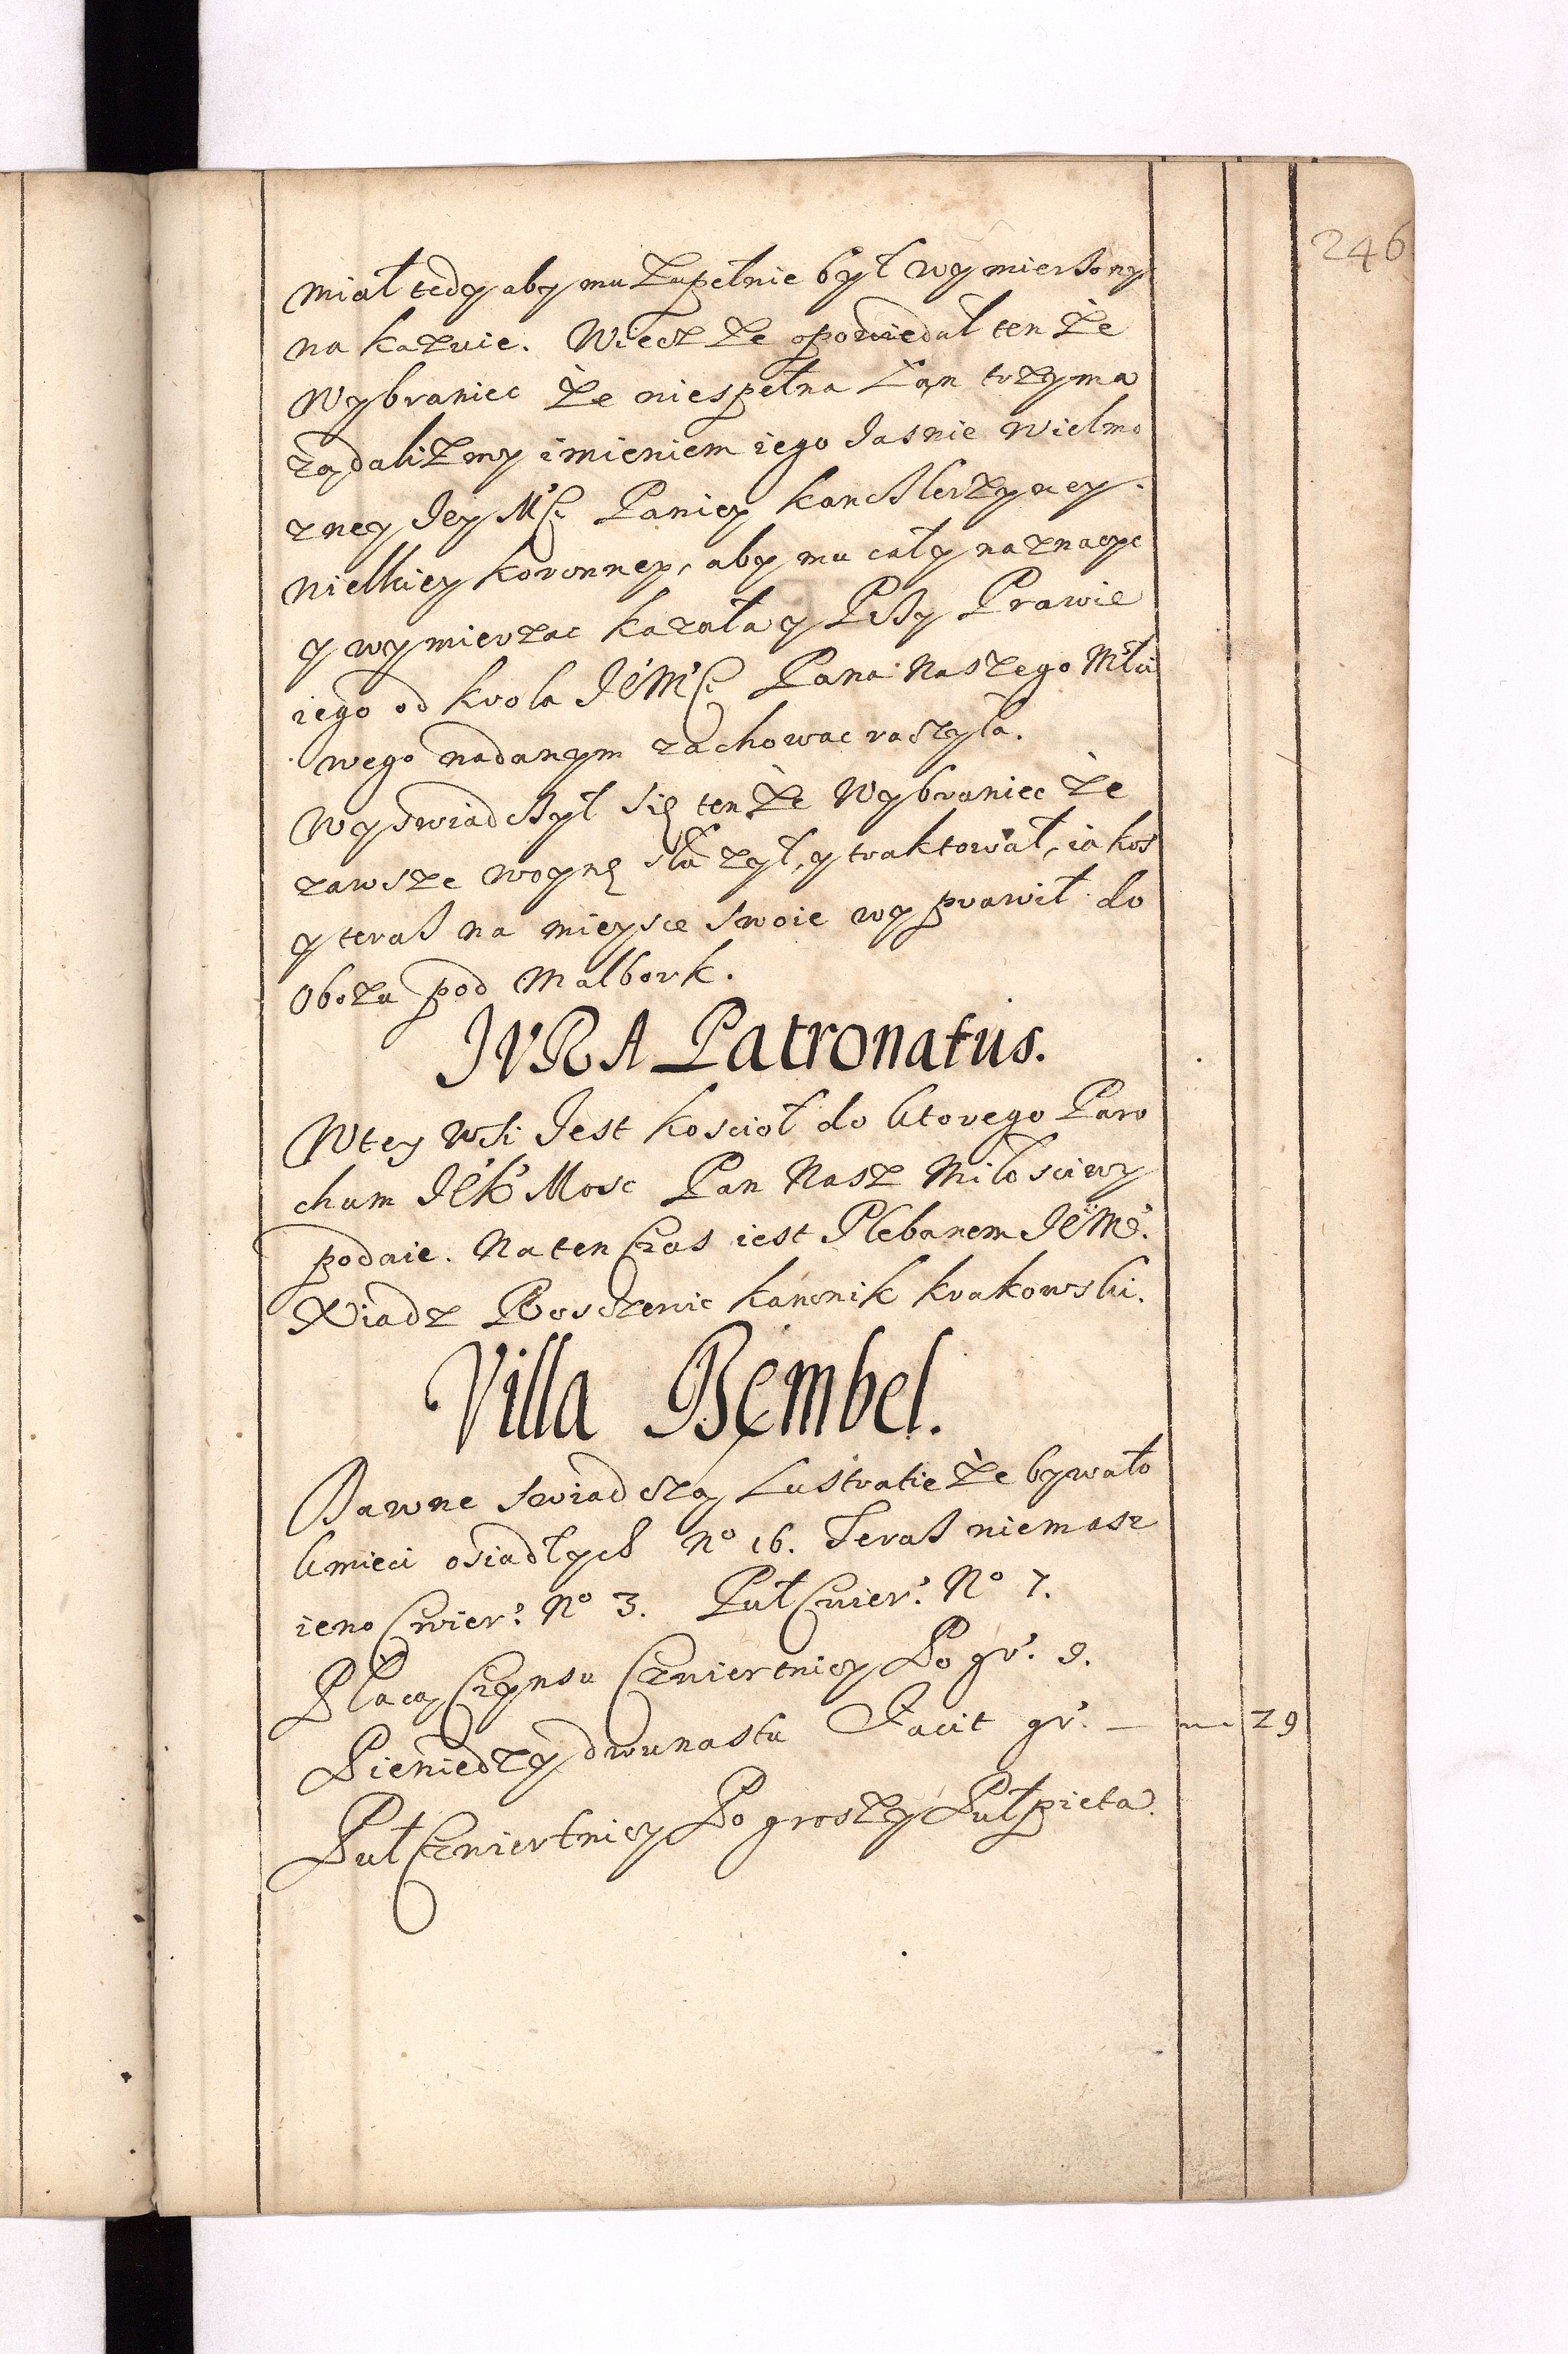 246
miał tedy aby mu zupełnie był wymierzony
na kazuie. Wiecz ze opowiedał ten że
Wybraniec że niespełna Łan trzyma
ządalizmy imieniem iego Jasnie Wielmo
zney Jey Mci Paniey kanclerzyney
Wielkiey koronney, aby mu cały naznaczyc
y wymierzac kazała y Przy Prawie
iego od krola JE'Mci Pana Naszego Miłci
wego nadanym zachowac raczyła.
Wyswiadczył się tenże Wybraniec że
zawsze woynę słuzył, y traktował, iakos
y teras na mieysce swoie wyprawił do
Obozu pod Malbork.
JVRA Patronatus.
Wtey wsi Jest kosciół do ktorego Paro
chum JE'k' Mosc Pan Nasz Miłosciwy
podaie. Naten Czas iest Plebanem JE'Mc'.
Xiadz kanonik krakowski.
Villa Bembel.
Dawne swiadczą Lustratie że bywało
kmieci osiadłych No 16. Teras niemasz
ieno Cwier: No 3. Puł Cwier: No 7.
Płacą Czynsu Czwiertnicy Po gr. 9.
Pieniedzy dwunastu Facit gr. — — 29
Puł Czwiertnicy Po groszy Puł pieta.